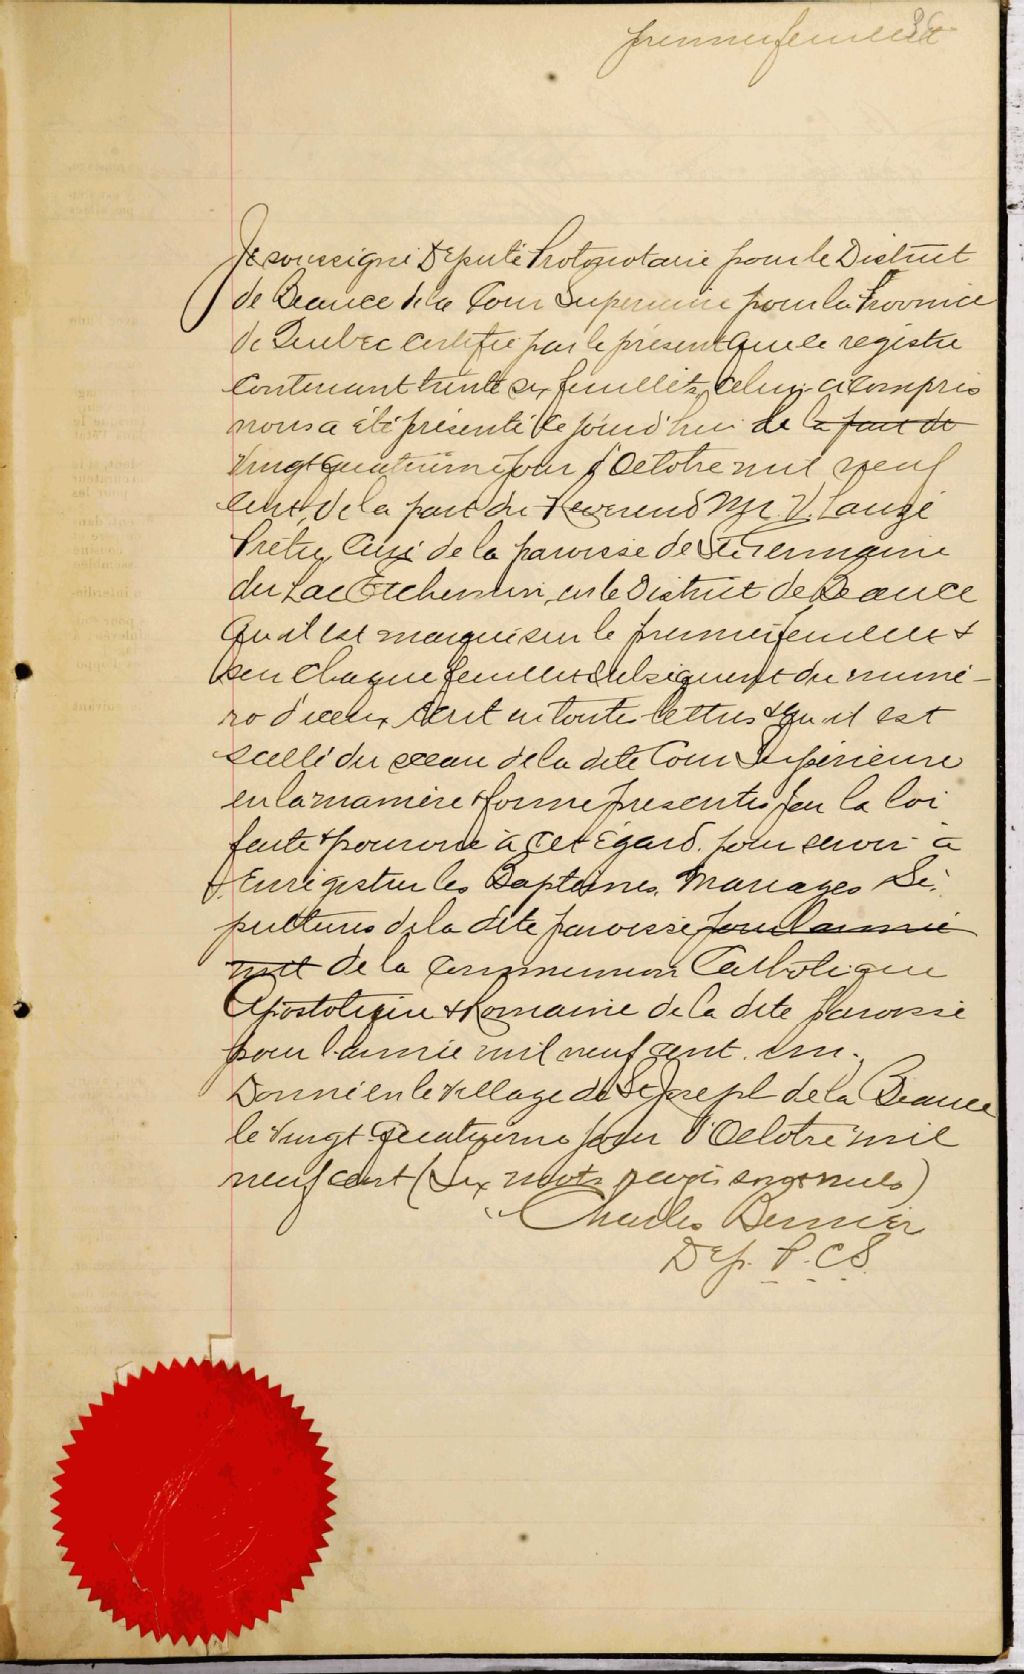 premier feuillet
36
Je soussigné Député Protonotaire pour le District
de Beauce de la Cour Superieure pour la Province
de Quebec certifie par le présent que le registre
contenant trente six feuillets, celui-ci compris
nous a été présenté ce jourd'hui de la part de
vingt quatrième jour d'Octobre mil neuf
cent, de la part du Reverend Mr. V. Lauzé
Prêtre, Curé de la paroisse de Ste Germaine
du Lac Etchemin, en le District de Beauce
Qu'il est marqué sur le premier feuillet &
sur chaque feuillet subséquent du numé-
ro d'iceux, écrit en toutes lettres & qu'il est
scellé du sceau de la dite Cour Supérieure
en la manière & forme prescrites par la loi
faite & pourvue à cet Égard. pour servir à
Enrégistrer les Baptêmes, Mariages Sé-
pultures de la dite paroisse pour l'année
mil de la Communion Catholique
Apostolique & Romaine de la dite paroisse
pour l'année mil neuf cent un.
Donné en le village de St Joseph de la Beauce
le vingt quatrième jour d'Octobre mil
neuf cent (Six mots rayés sont nuls)
Charles Bernier
Dep. P. C S.